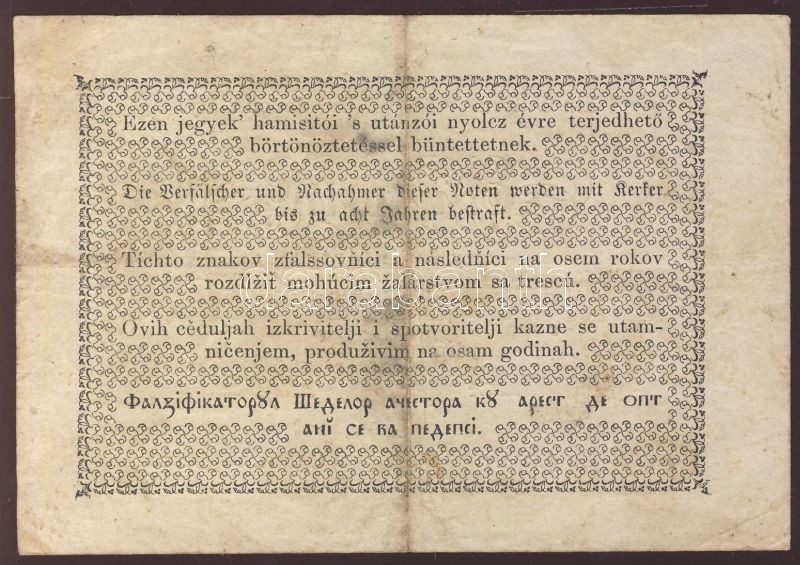 Ezen jegyek' hamisitói 's utánzói nyolcz évre terjedhető
börtönöztetéssel büntettetnek.
Die Verfälscher und Nachahmer dieser Noten werden mit Kerker
bis zu acht Jahren bestraft.
Tíchto znakov zfalssovňíci a následňíci na osem rokov
rozdĺžiť mohúcim žalárstvom sa trescú.
Ovih céduljah izkrivitelji i spotvoritelji kazne se utam-
ničenjem, produživim na osam godinah.
Фалзіфікаторꙋл Шеделор ачестора кꙋ арест де опт
анї се ва педепсі.
darabanth